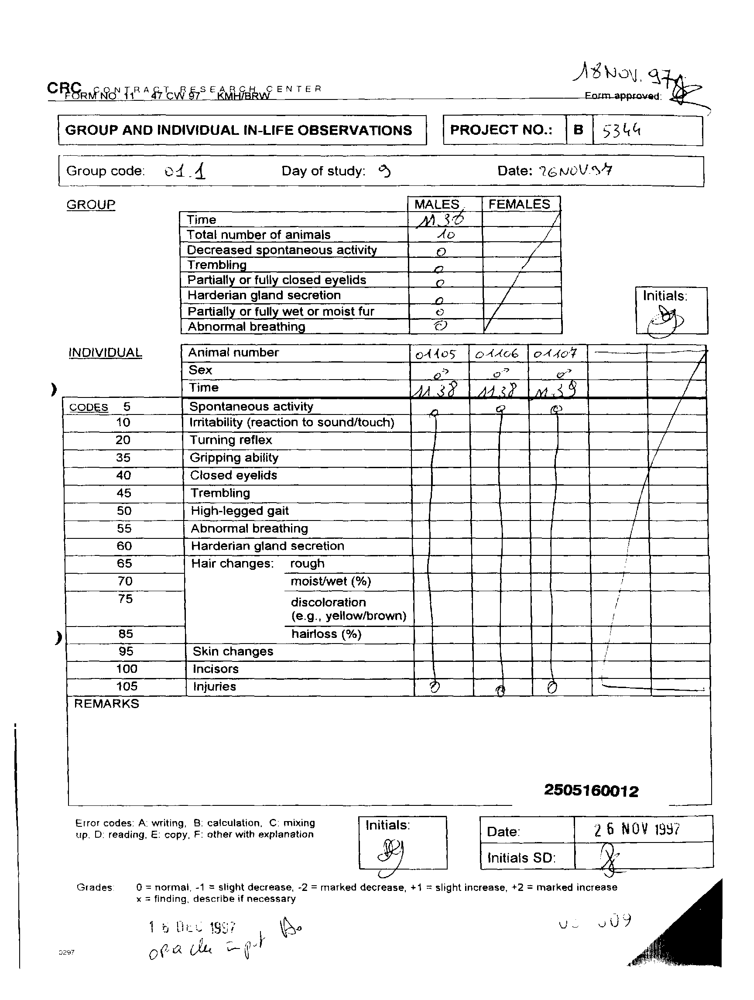 18 NOV. 97
CRC CONTRACT RESEARCH CENTER
FORM NO 11 47 CW 97 KMH/BRW
Form approved:
GROUP AND INDIVIDUAL IN-LIFE OBSERVATIONS PROJECT NO.: B 5344
Group code: 01.1 Day of study: 9 Date: 26 NOV 97
GROUP MALES FEMALES
Time 11 36
Total number of animals 10
Decreased spontaneous activity 0
Trembling 0
Partially or fully closed eyelids 0
Harderian gland secretion 0
Partially or fully wet or moist fur 0
Abnormal breathing 0
Initials:
INDIVIDUAL Animal number 01105 01106 01107
Sex ♂ ♂ ♂
Time 11 38 11 38 11 39
CODES 5 Spontaneous activity 0 0 0
10 Irritability (reaction to sound/touch)
20 Turning reflex
35 Gripping ability
40 Closed eyelids
45 Trembling
50 High-legged gait
55 Abnormal breathing
60 Harderian gland secretion
65 Hair changes: rough
70 moist/wet (%)
75 discoloration
(e.g., yellow/brown)
85 hairloss (%)
95 Skin changes
100 Incisors
105 Injuries 0 0 0
REMARKS
2505160012
Error codes: A: writing, B: calculation, C: mixing
up, D: reading, E: copy, F: other with explanation
Initials:
Date: 26 NOV 1997
Initials SD:
Grades: 0 = normal, -1 = slight decrease, -2 = marked decrease, +1 = slight increase, +2 = marked increase
x = finding, describe if necessary
16 DEC 1997
0297